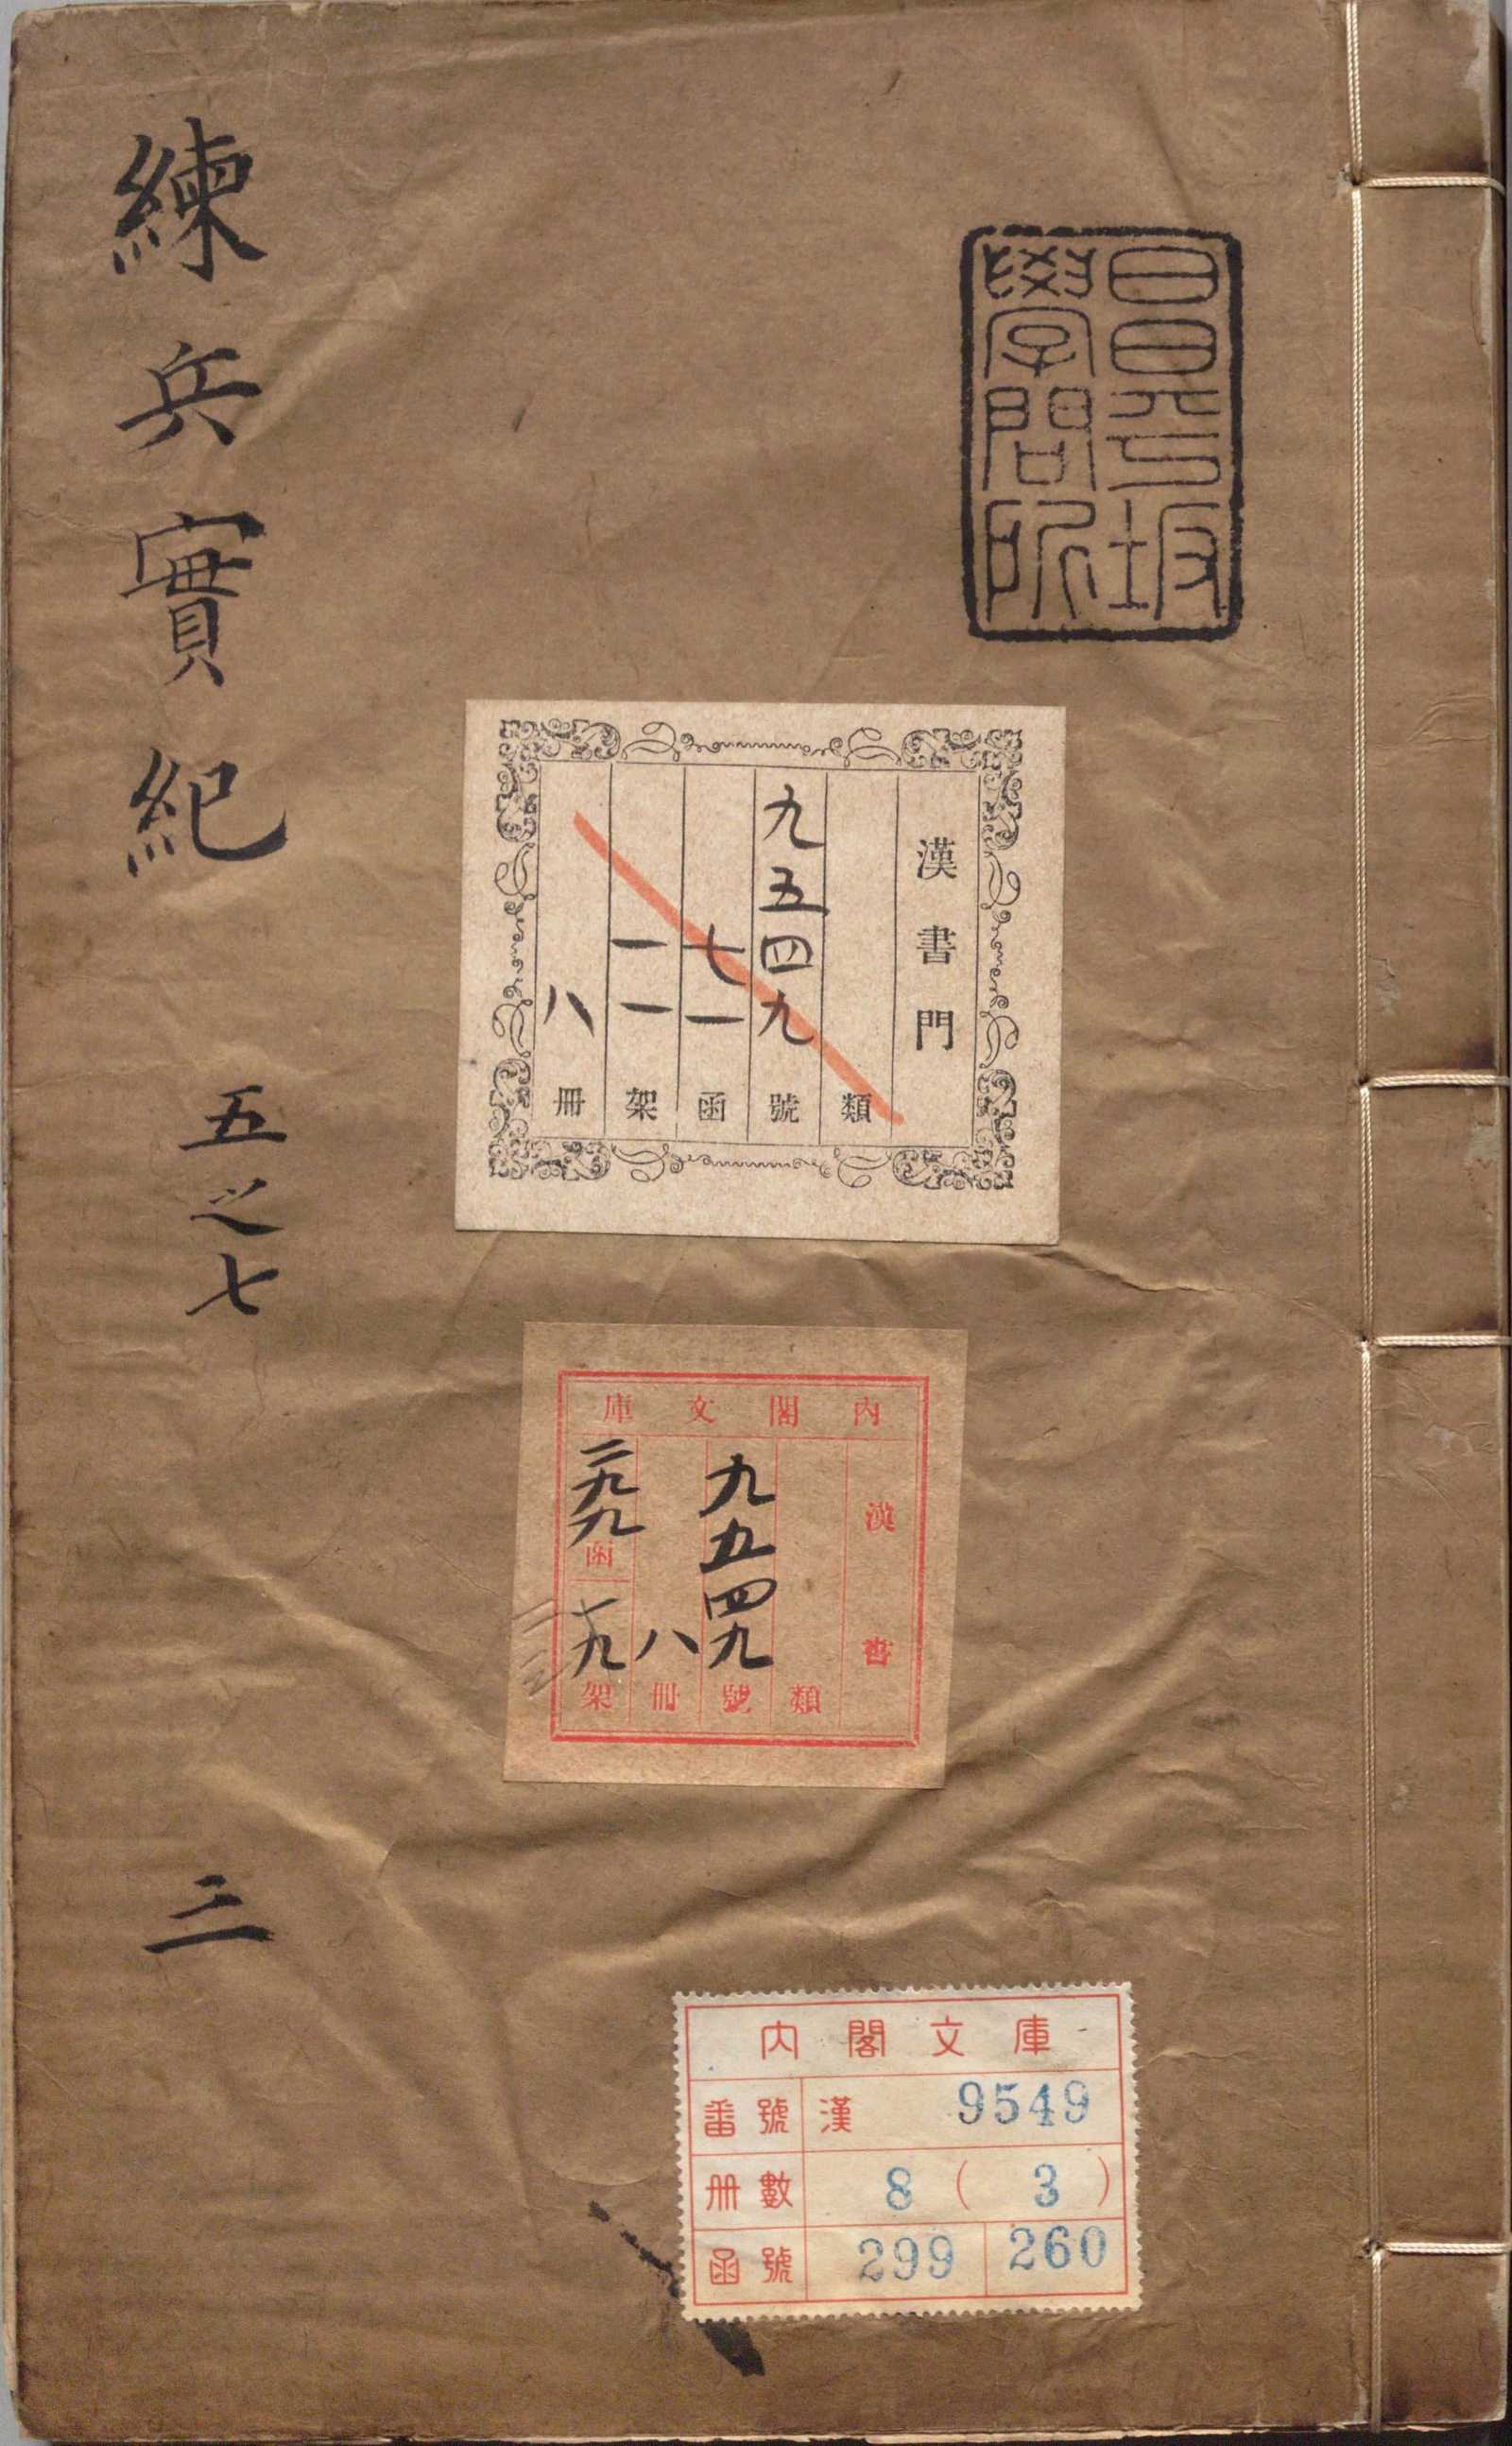 昌平坂
學問所
漢書門
類
九五四九號
七一函
一一架
八冊
内閣文庫
漢書
類
九五四九號
八冊
二九九函
十九架
内閣文庫
番號 漢 9549
册數 8 ( 3 )
函號 299 260
練兵實紀 五之七 三